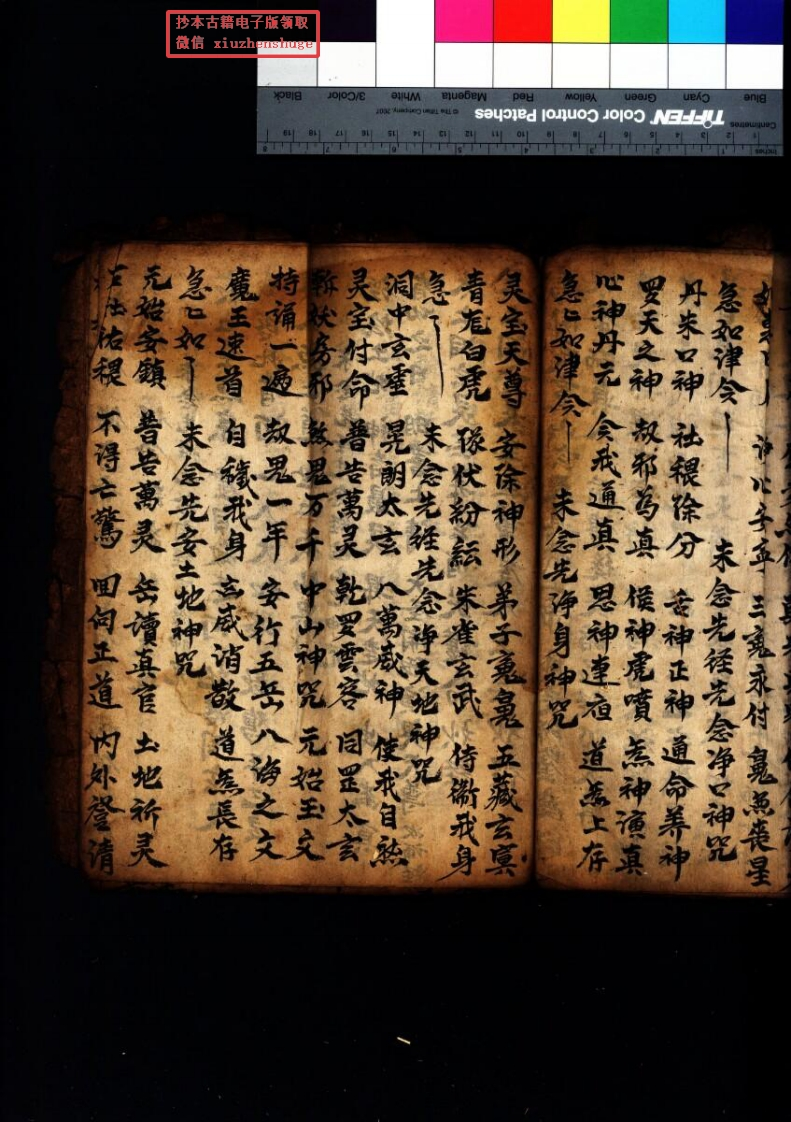 抄本古籍电子版领取
微信 xiuzhenshuge
Blue Cyan Green Yellow Red Magenta White 3/Color Black
TIFFEN Color Control Patches
© The Tiffen Company, 2007
Centimetres
Inches
三魂永付
急如津令
未念先经先念净口神咒
丹朱口神 社稷徐分 舌神正神 通命养神
罗天之神 却邪为真 侯神虎喷 炁神演真
心神丹元 令我通真 思神
道炁上存
急〻如津令 未念先净身神咒
灵宝天尊 安徐神形 弟子魂魄 五藏玄冥
青龙白虎 隊伏紛紜 朱雀玄武 侍衞我身
急〻 未念先经先念净天地神咒
洞中玄虚 晃朗太玄 八萬威神 使我自然
灵宝付命 普告萬灵 乾罗
太玄
斩祅 煞鬼万千 中山神咒 元始玉文
持誦一遍 却鬼一年 安行五岳 八海之文
魔王速首 自
我身
威消散 道炁長存
急〻如 未念先安土地神咒
元始安鎮 普告萬灵 岳讀真官 土地祈灵
社佑稷 不得亡驚 回向正道 内外澄清